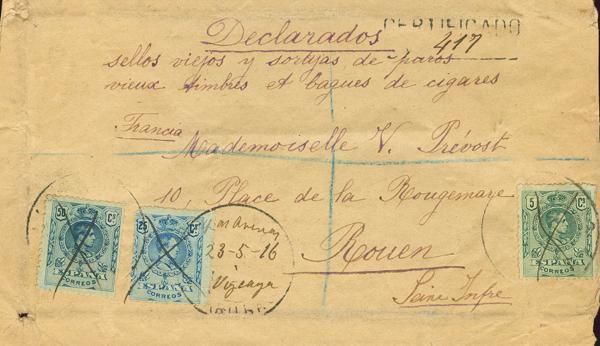 CERTIFICADO
417
Declarados
sellos viejos y sortijas de puros
vieux timbres et bagues de cigares
Francia
Mademoiselle V. Prévost
10, Place de la Rougemare
Rouen
Seine Infre
30 Cs
ESPAÑA
CORREOS
25 Cs
ESPAÑA
CORREOS
Arenas
23-5-16
Vizcaya
5 Cs
ESPAÑA
CORREOS